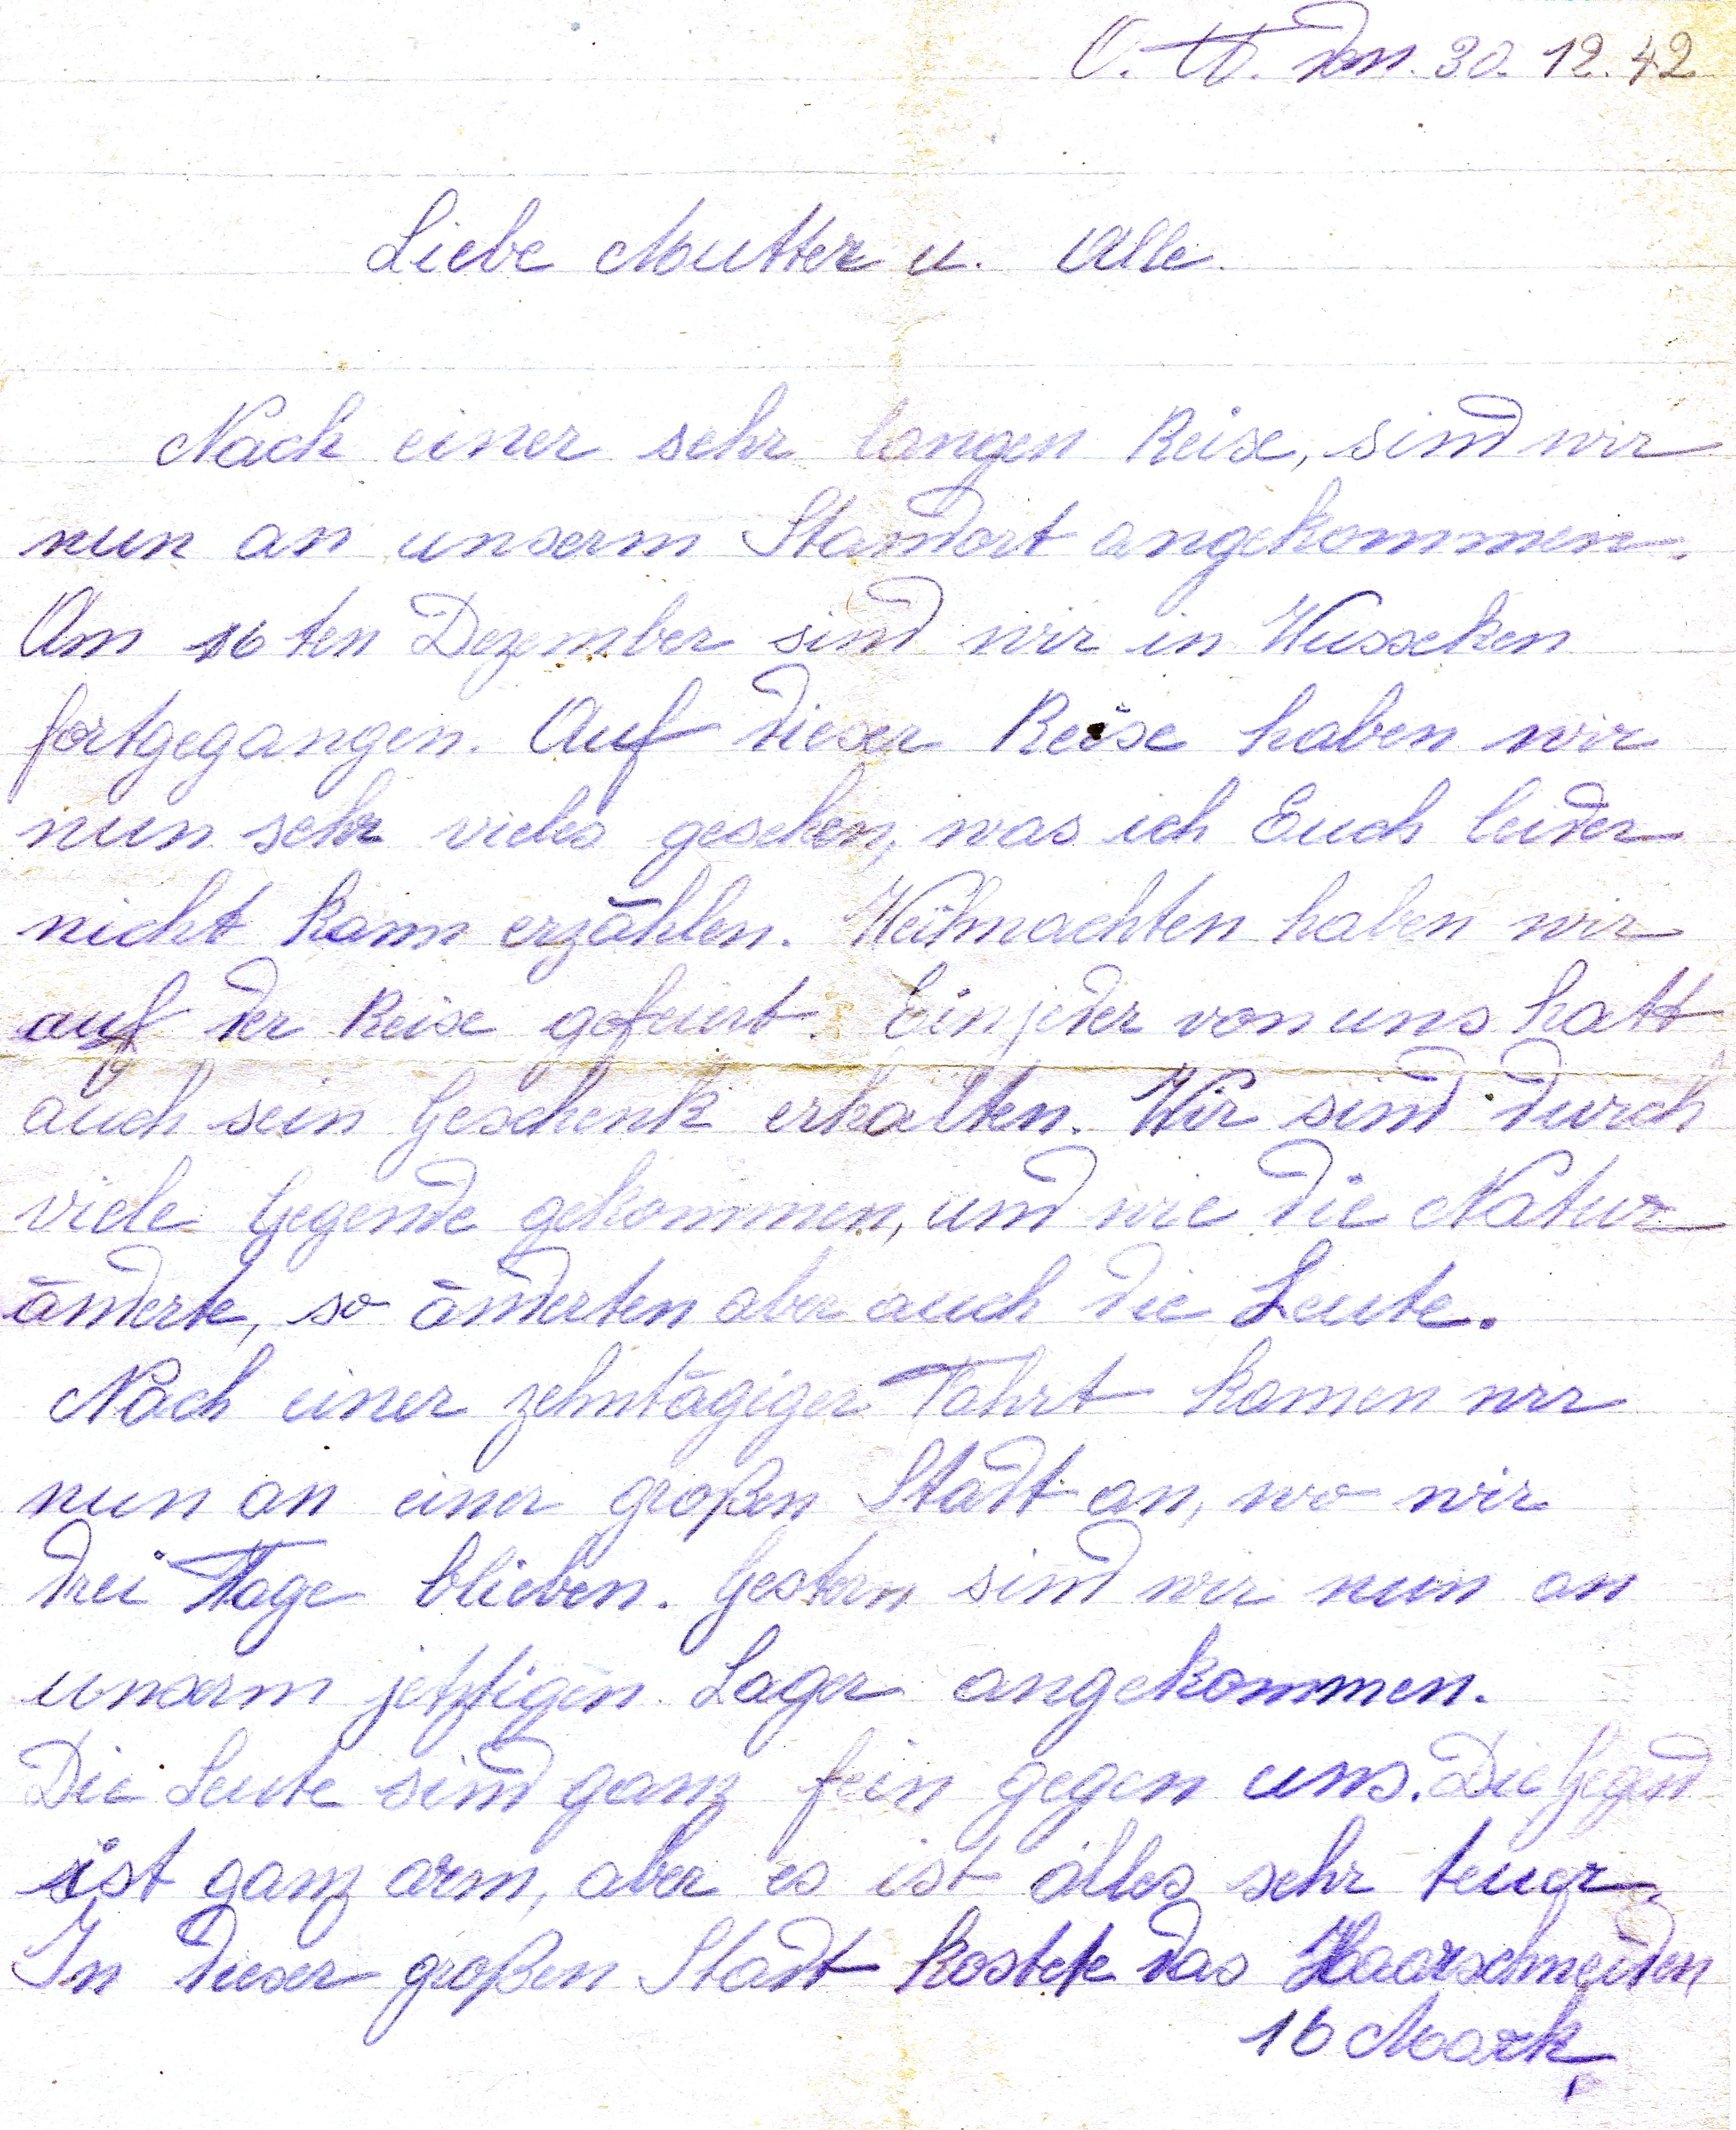 O. U. den. 30. 12. 42
Liebe Mutter u. Alle.
Nach einer sehr langen Reise, sind wir
nun an unserm Standort angekommen.
Am 16ten Dezember sind wir in Husseken
fortgegangen. Auf dieser Reise haben wir
nun sehr vieles gesehen, was ich Euch leider
nicht kann erzählen. Weihnachten haben wir
auf der Reise gefeiert. Ein jeder von uns hatt
auch sein Geschenk erhalten. Wir sind durch
viele Gegende gekommen, und wie die Natur
änderte, so änderten aber auch die Leute.
Nach einer zehntägiger Fahrt kamen wir
nun an einer großen Stadt an, wo wir
drei Tage blieben. Gestern sind wir nun an
unserm jetztigen Lager angekommen.
Die Leute sind ganz fein gegen uns. Die Gegend
ist ganz arm, aber es ist alles sehr teuer.
In dieser großen Stadt kostete das Haarschneiden
16 Mark